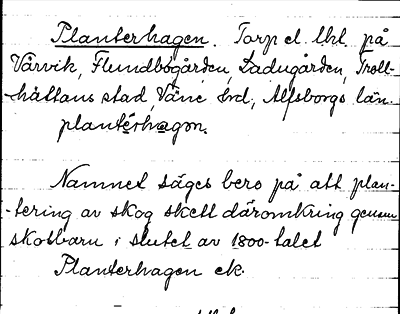 Planterhagen. Torp el. lht. på
Vårvik, Flundbogården, Ladugården, Troll-
hättans stad, Väne hd, Älfsborgs län.
plantérhagən.
Namnet säges bero på att plan-
-tering av skog skett däromkring genom
skolbarn i slutet av 1800-talet
Planterhagen ek.